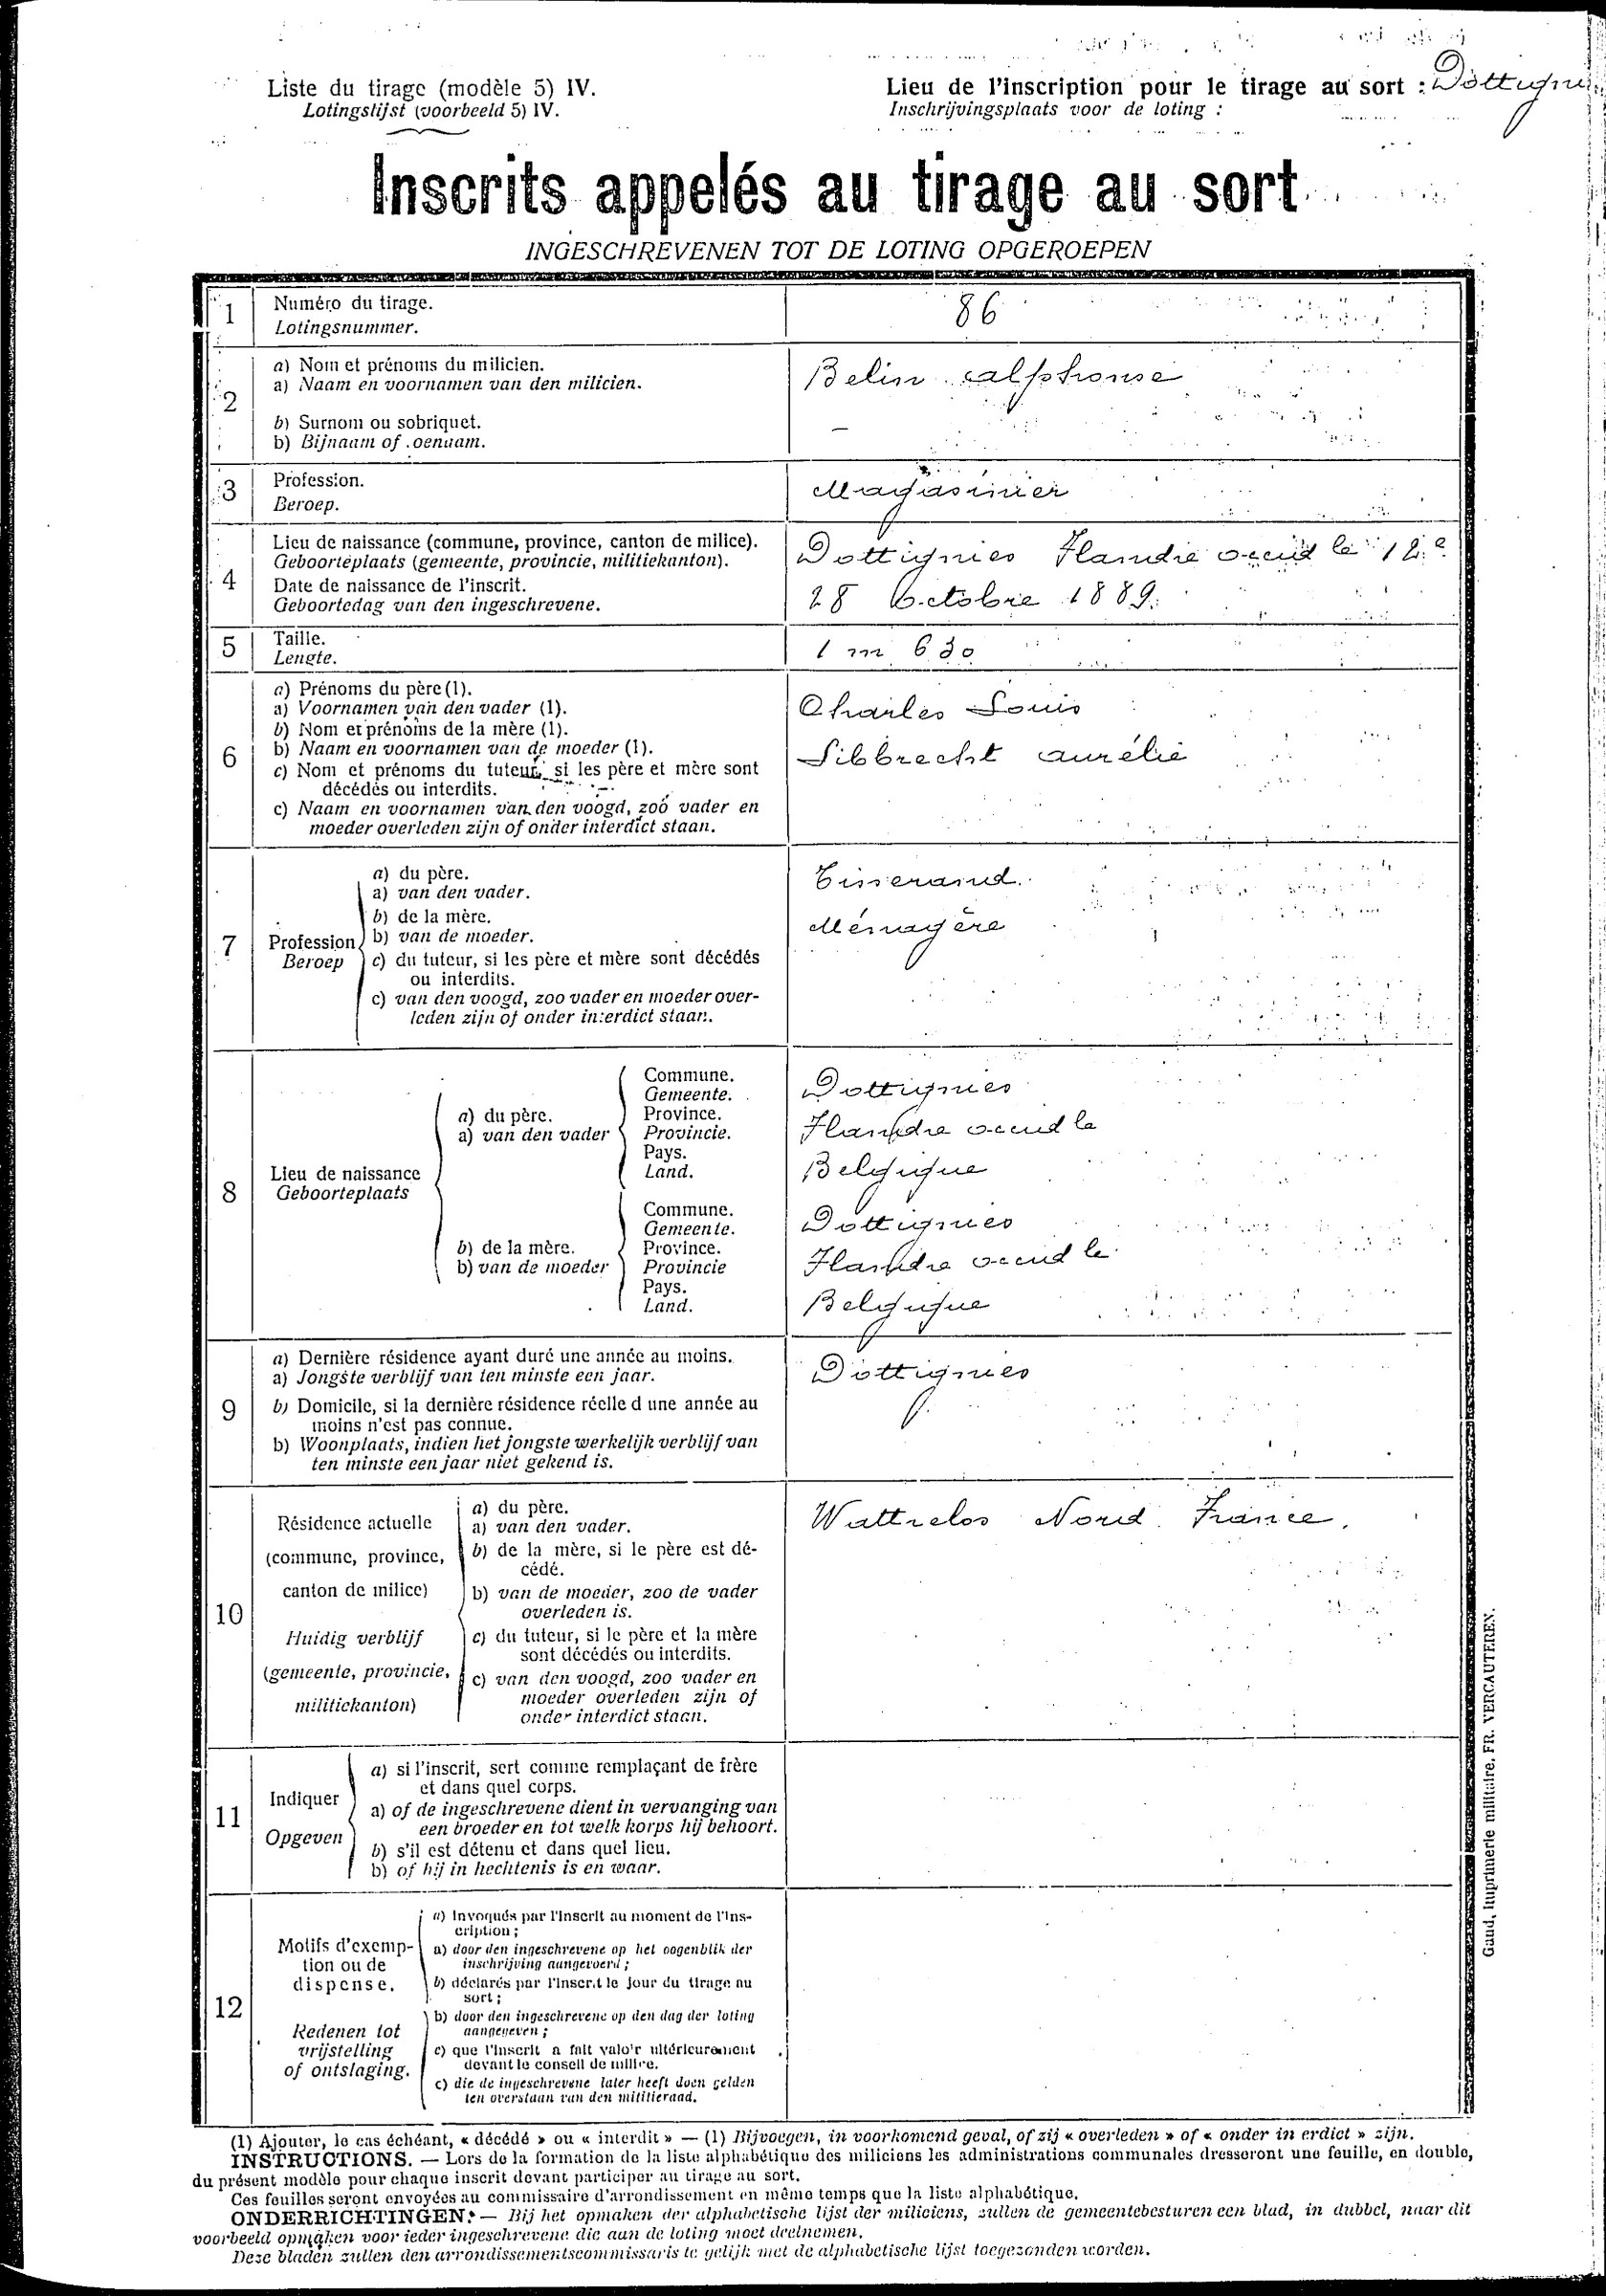 Liste du tirage (modèle 5) IV.
Lotingslijst (voorbeeld 5) IV.
Lieu de l'inscription pour le tirage au sort : Dottignies
Inschrijvingsplaats voor de loting :
Inscrits appelés au tirage au sort
INGESCHREVENEN TOT DE LOTING OPGEROEPEN
1
Numéro du tirage.
Lotingsnummer.
86
2
a) Nom et prénoms du milicien.
a) Naam en voornamen van den milicien.
Belin Alphonse
b) Surnom ou sobriquet.
b) Bijnaam of
–
3
Profession.
Beroep.
Magasinier
4
Lieu de naissance (commune, province, canton de milice).
Geboorteplaats (gemeente, provincie, militiekanton).
Dottignies Flandre occid le 12e
Date de naissance de l'inscrit.
Geboortedag van den ingeschrevene.
28 Octobre 1889.
5
Taille.
Lengte.
1 m 630
6
a) Prénoms du père (1).
a) Voornamen van den vader (1).
Charles Louis
b) Nom et prénoms de la mère (1).
b) Naam en voornamen van de moeder (1).
Libbrecht Aurélie
c) Nom et prénoms du tuteur, si les père et mère sont
décédés ou interdits.
c) Naam en voornamen van den voogd, zoo vader en
moeder overleden zijn of onder interdict staan.
7
Profession
Beroep
a) du père.
a) van den vader.
Tisserand.
b) de la mère.
b) van de moeder.
Ménagère
c) du tuteur, si les père et mère sont décédés
ou interdits.
c) van den voogd, zoo vader en moeder over-
leden zijn of onder interdict staan.
8
Lieu de naissance
Geboorteplaats
a) du père.
a) van den vader
Commune.
Gemeente.
Dottignies
Province.
Provincie.
Flandre occid le
Pays.
Land.
Belgique
b) de la mère.
b) van de moeder
Commune.
Gemeente.
Dottignies
Province.
Provincie
Flandre occid le
Pays.
Land.
Belgique
9
a) Dernière résidence ayant duré une année au moins.
a) Jongste verblijf van ten minste een jaar.
Dottignies
b) Domicile, si la dernière résidence réelle d une année au
moins n'est pas connue.
b) Woonplaats, indien het jongste werkelijk verblijf van
ten minste een jaar niet gekend is.
10
Résidence actuelle
(commune, province,
canton de milice)
Huidig verblijf
(gemeente, provincie,
militiekanton)
a) du père.
a) van den vader.
Wattrelos Nord. France.
b) de la mère, si le père est dé-
cédé.
b) van de moeder, zoo de vader
overleden is.
c) du tuteur, si le père et la mère
sont décédés ou interdits.
c) van den voogd, zoo vader en
moeder overleden zijn of
onder interdict staan.
11
Indiquer
Opgeven
a) si l'inscrit, sert comme remplaçant de frère
et dans quel corps.
a) of de ingeschrevene dient in vervanging van
een broeder en tot welk korps hij behoort.
b) s'il est détenu et dans quel lieu.
b) of hij in hechtenis is en waar.
12
Motifs d'exemp-
tion ou de
dispense.
Redenen tot
vrijstelling
of ontslaging.
a) Invoqués par l'inscrit au moment de l'ins-
cription ;
a) door den ingeschrevene op het oogenblik der
inschrijving aangevoerd ;
b) déclarés par l'inscrit le jour du tirage au
sort ;
b) door den ingeschrevene op den dag der loting
aangegeven ;
c) que l'inscrit a fait valoir ultérieurement
devant le conseil de milice.
c) die de ingeschrevene later heeft doen gelden
ten overstaan van den militieraad.
Gand, Imprimerie militaire, FR. VERCAUTEREN.
(1) Ajouter, le cas échéant, « décédé » ou « interdit » — (1) Bijvoegen, in voorkomend geval, of zij « overleden » of « onder in erdict » zijn.
INSTRUCTIONS. — Lors de la formation de la liste alphabétique des miliciens les administrations communales dresseront une feuille, en double,
du présent modèle pour chaque inscrit devant participer au tirage au sort.
Ces feuilles seront envoyées au commissaire d'arrondissement en même temps que la liste alphabétique.
ONDERRICHTINGEN. — Bij het opmaken der alphabetische lijst der miliciens, zullen de gemeentebesturen een blad, in dubbel, naar dit
voorbeeld opmaken voor ieder ingeschrevene die aan de loting moet deelnemen.
Deze bladen zullen den arrondissementscommissaris te gelijk met de alphabetische lijst toegezonden worden.